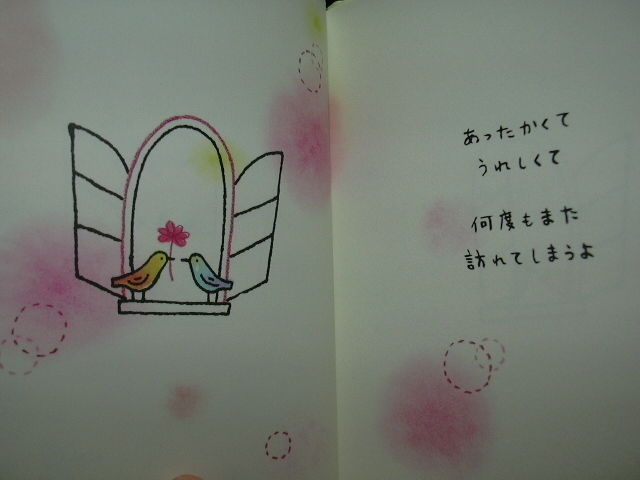 あったかくて
うれしくて
何度もまた
訪れてしまうよ